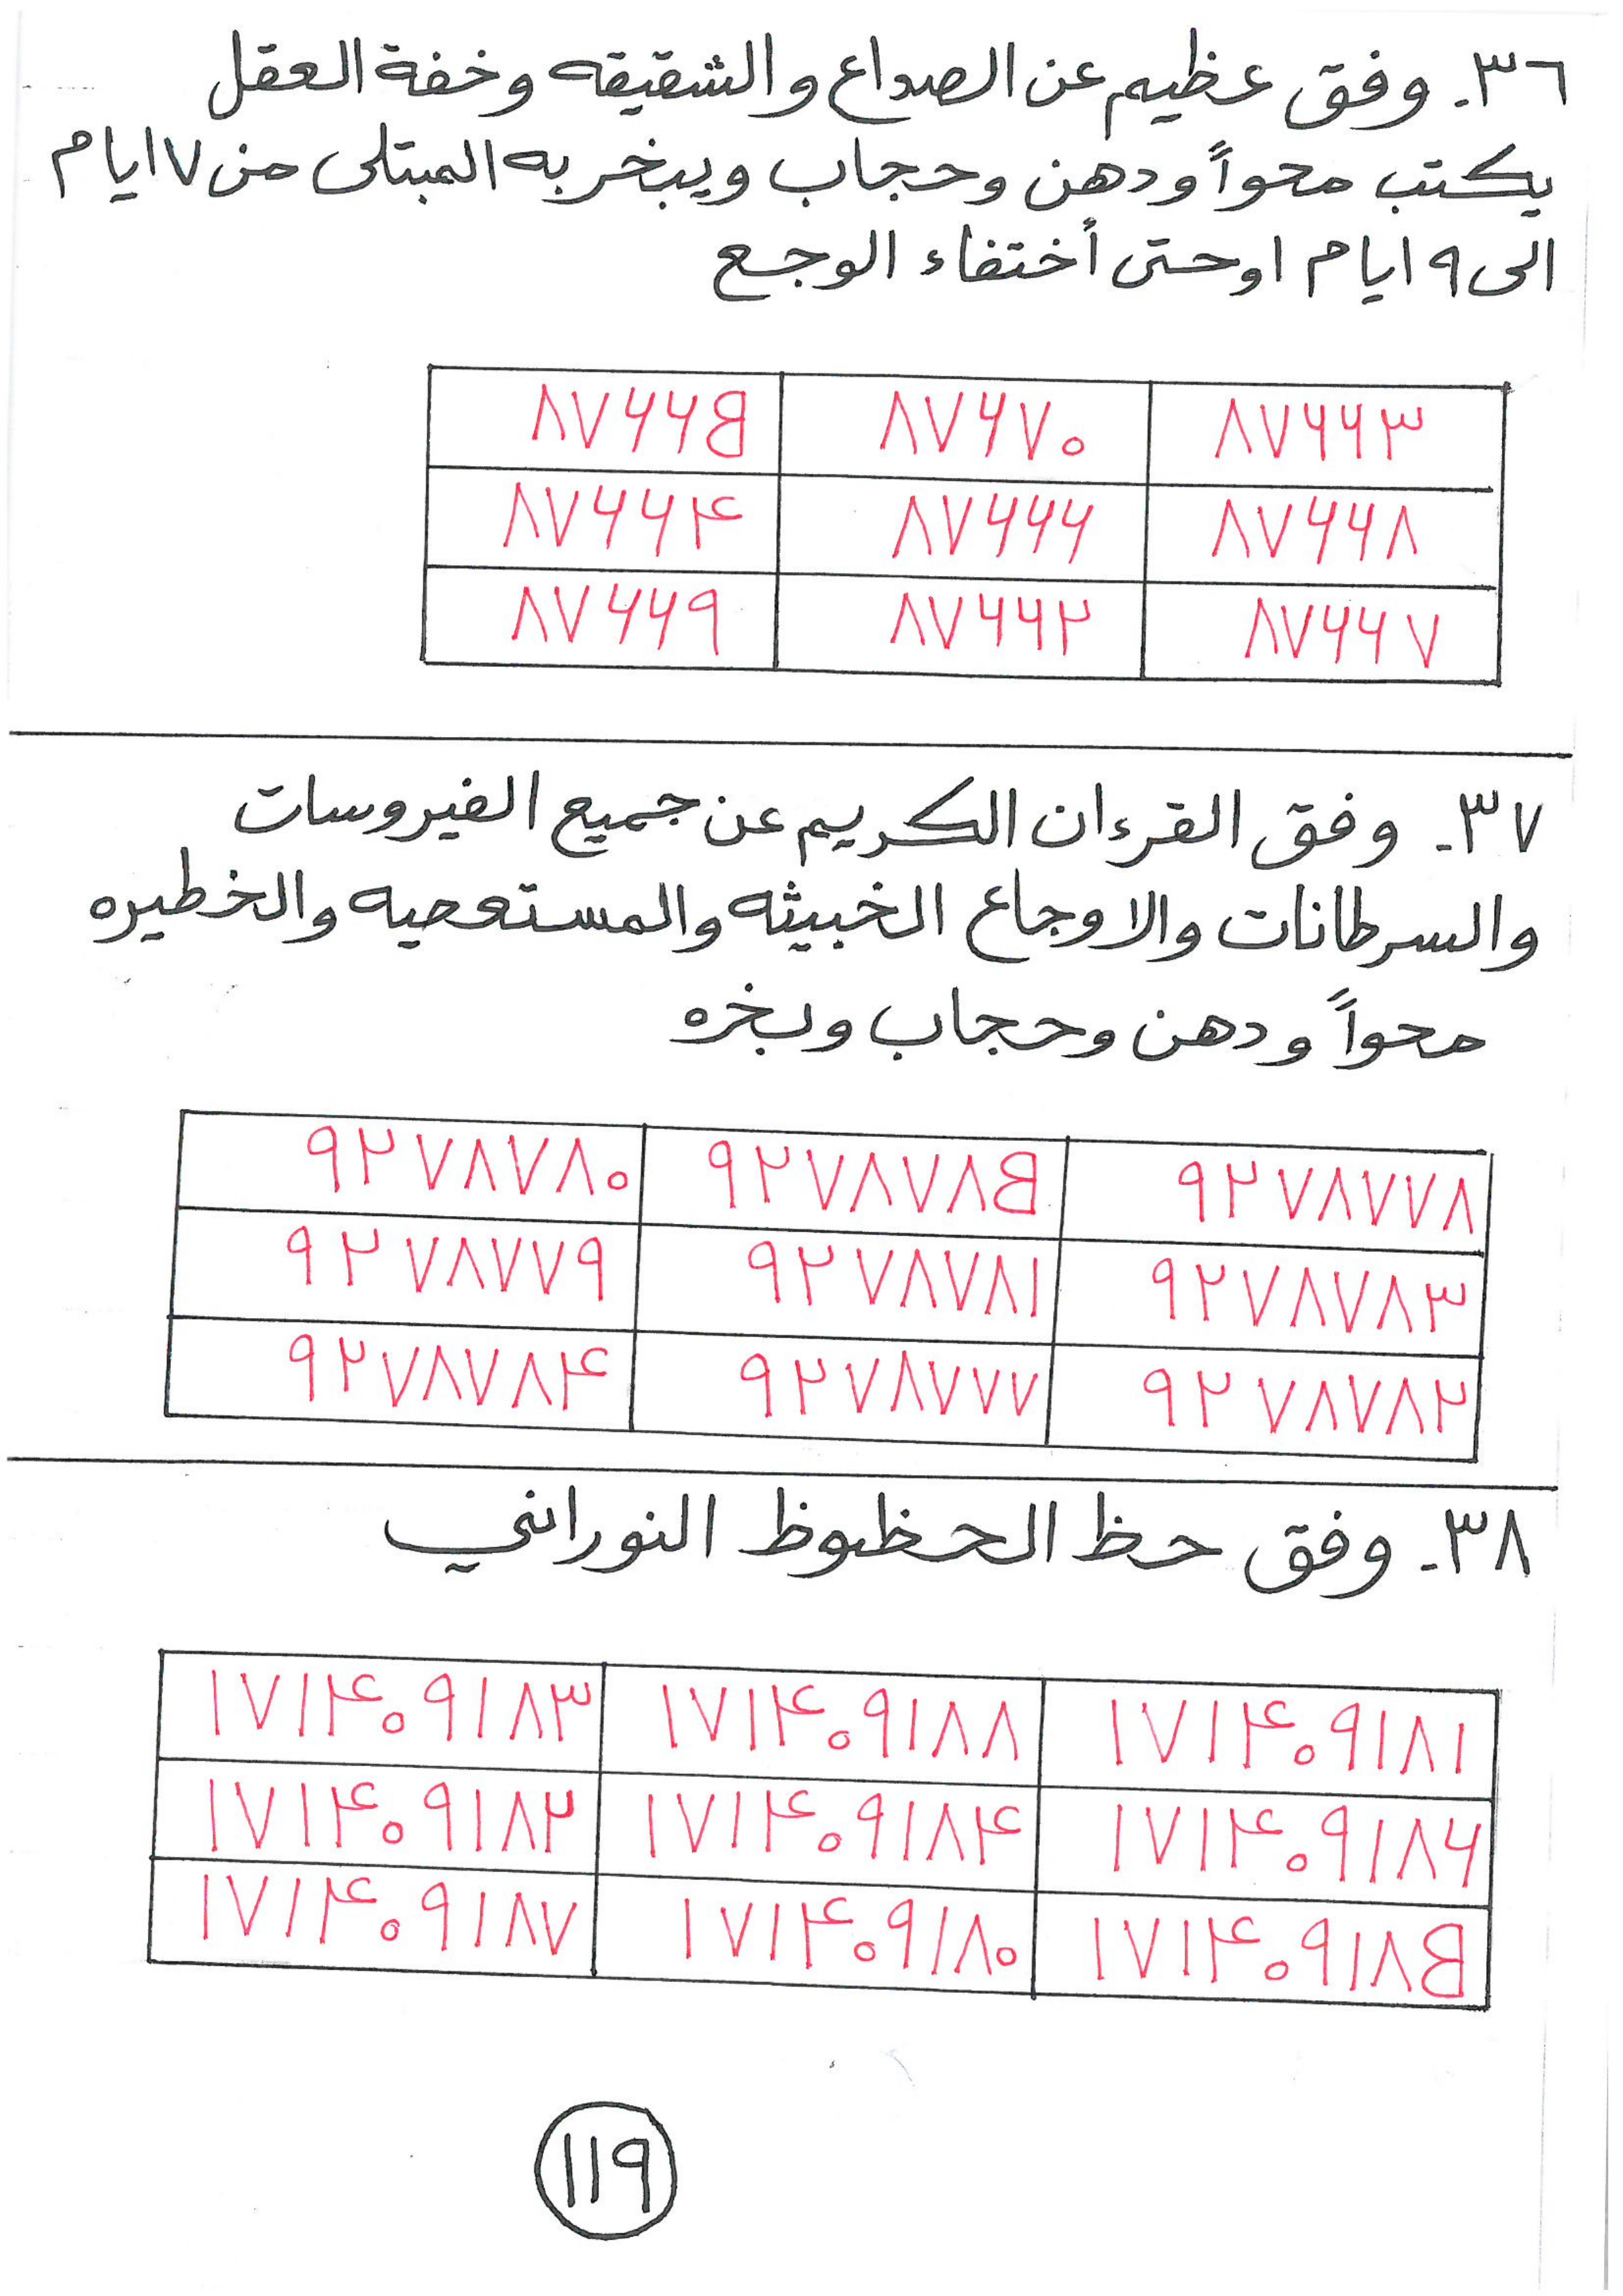 ٣٦- وفق عظيم عن الصداع والشقيقه وخفة العقل
يكتب محواً ودهن وحجاب ويبخر به المبتلى من ٧ ايام
الى ٩ ايام او حتى أختفاء الوجع
٨٧۶۶٣ ٨٧۶٧٠ ٨٧۶۶B
٨٧۶۶٨ ٨٧۶۶۶ ٨٧۶۶۴
٨٧۶۶٧ ٨٧۶۶٢ ٨٧۶۶٩
٣٧- وفق القرءان الكريم عن جميع الفيروسات
والسرطانات والاوجاع الخبيثه والمستعصيه والخطيره
محواً ودهن وحجاب وبخره
٩٢٧٨٧٧٨ ٩٢٧٨٧٨B ٩٢٧٨٧٨٠
٩٢٧٨٧٨٣ ٩٢٧٨٧٨١ ٩٢٧٨٧٧٩
٩٢٧٨٧٨٢ ٩٢٧٨٧٧٧ ٩٢٧٨٧٨۴
٣٨- وفق حظ الحظوظ النوراني
١٧١۴٠٩١٨١ ١٧١۴٠٩١٨٨ ١٧١۴٠٩١٨٣
١٧١۴٠٩١٨۶ ١٧١۴٠٩١٨۴ ١٧١۴٠٩١٨٢
١٧١۴٠٩١٨B ١٧١۴٠٩١٨٠ ١٧١۴٠٩١٨٧
١١٩